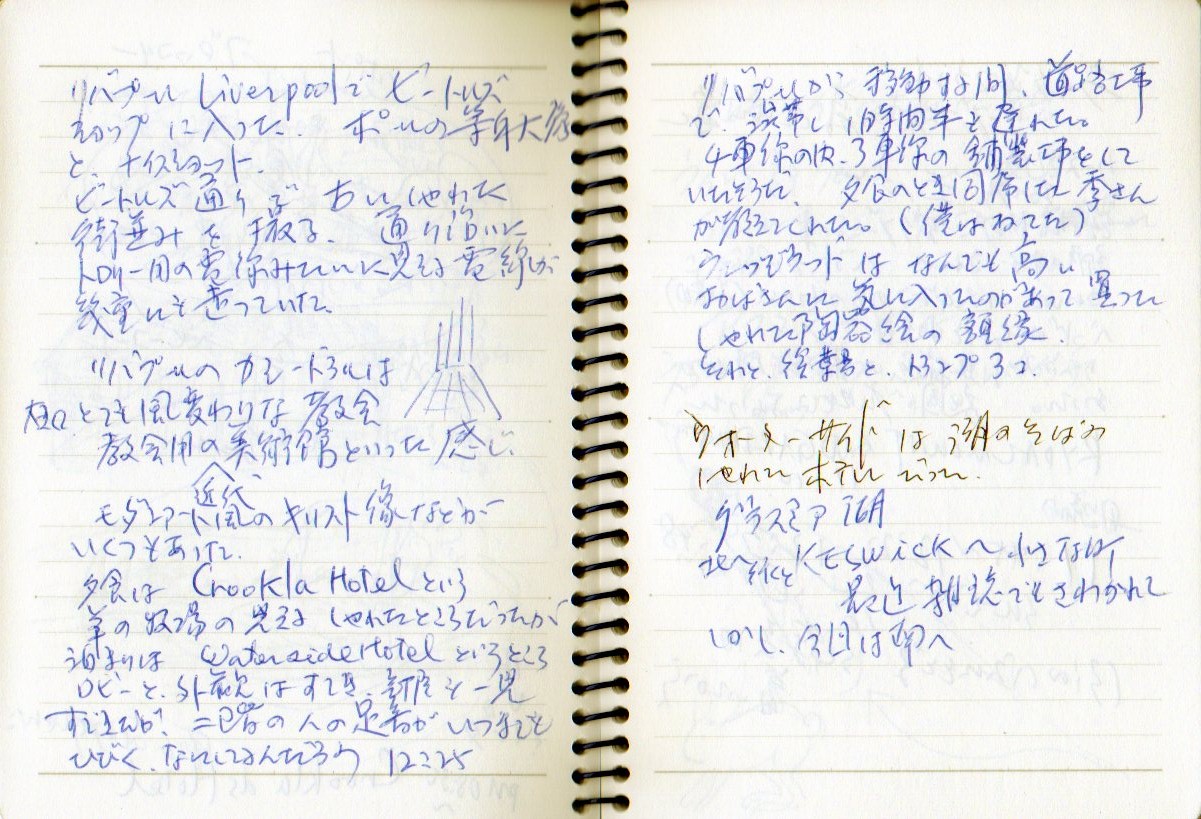 リバプール Liverpoolで ビートルズ
ショップ に入った. ポールの等身大
と、ナイスショット.
ビートルズ通りで おしゃれな
街並み を 撮る. 通り沿いに
トロリー用の電線みたいに見える 電線が
幾重にも走っていた.
リバプールの カシードラルは
とても風変わりな 教会
教会用の美術館といった感じ.
近代
モダンアート風の キリスト像などが
いくつもあった.
夕食は Crookla Hotelという
羊の牧場の見える しゃれたところだったが
泊まりは WatersideHotelというところ
ロビーと、外観はすてき. 部屋も一見
すてきだが、二階の人の足音がいつまでも
ひびく. なにしてるんだろう 12:25
リバプールから 移動する間、道路工事
で、渋滞し 1時間半も遅れた。
4車線の内、3車線の 舗装工事をして
いたそうだ. 夕食のとき同席した 李さん
が教えてくれた。(僕はねてた)
ウェッジウッド は なんでも 高い
おばさんに 気に入ったのがあって 買った
しゃれた陶器絵の 額縁.
それと、絵葉書と、トランプ3コ.
ウォーターサイド は 湖のそばの
しゃれた ホテル だった.
グラスミア 湖
KESWICK へ 小さな町
最近 雑誌でもさわがれて
しかし、今日は南へ